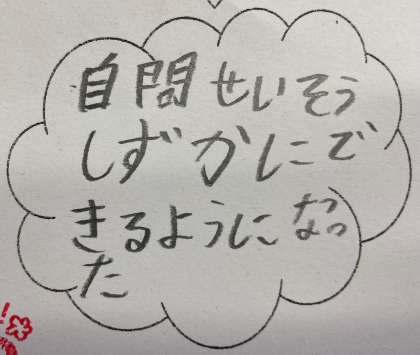 自問せいそう
しずかにで
きるようになっ
た
!